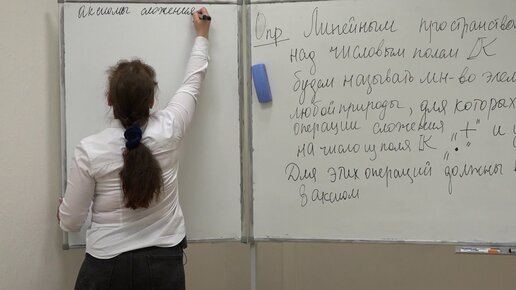 Аксиомы сложения
Опр Линейным пространством
над числовым полем K
будем называть мн-во элем
любой природы, для которых
операции сложения „+" и у
на число из поля K „·"
Для этих операций должны в
8 аксиом